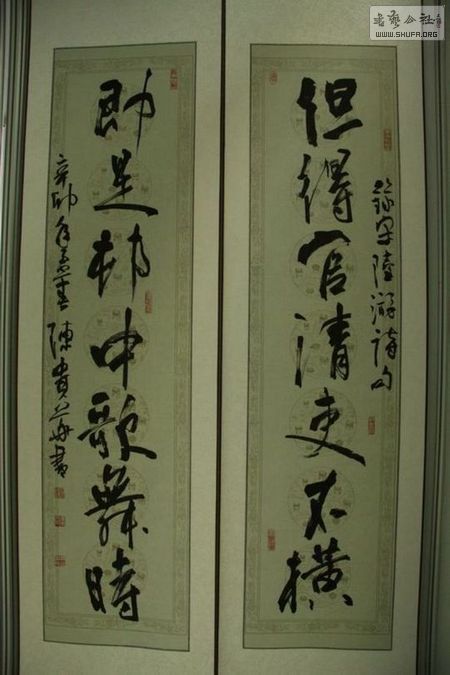 書藝公社
WWW.SHUFA.ORG
錄宋陸游詩句
但得官清吏不橫
即是村中歌舞時
辛卯年 春 陳貴 書